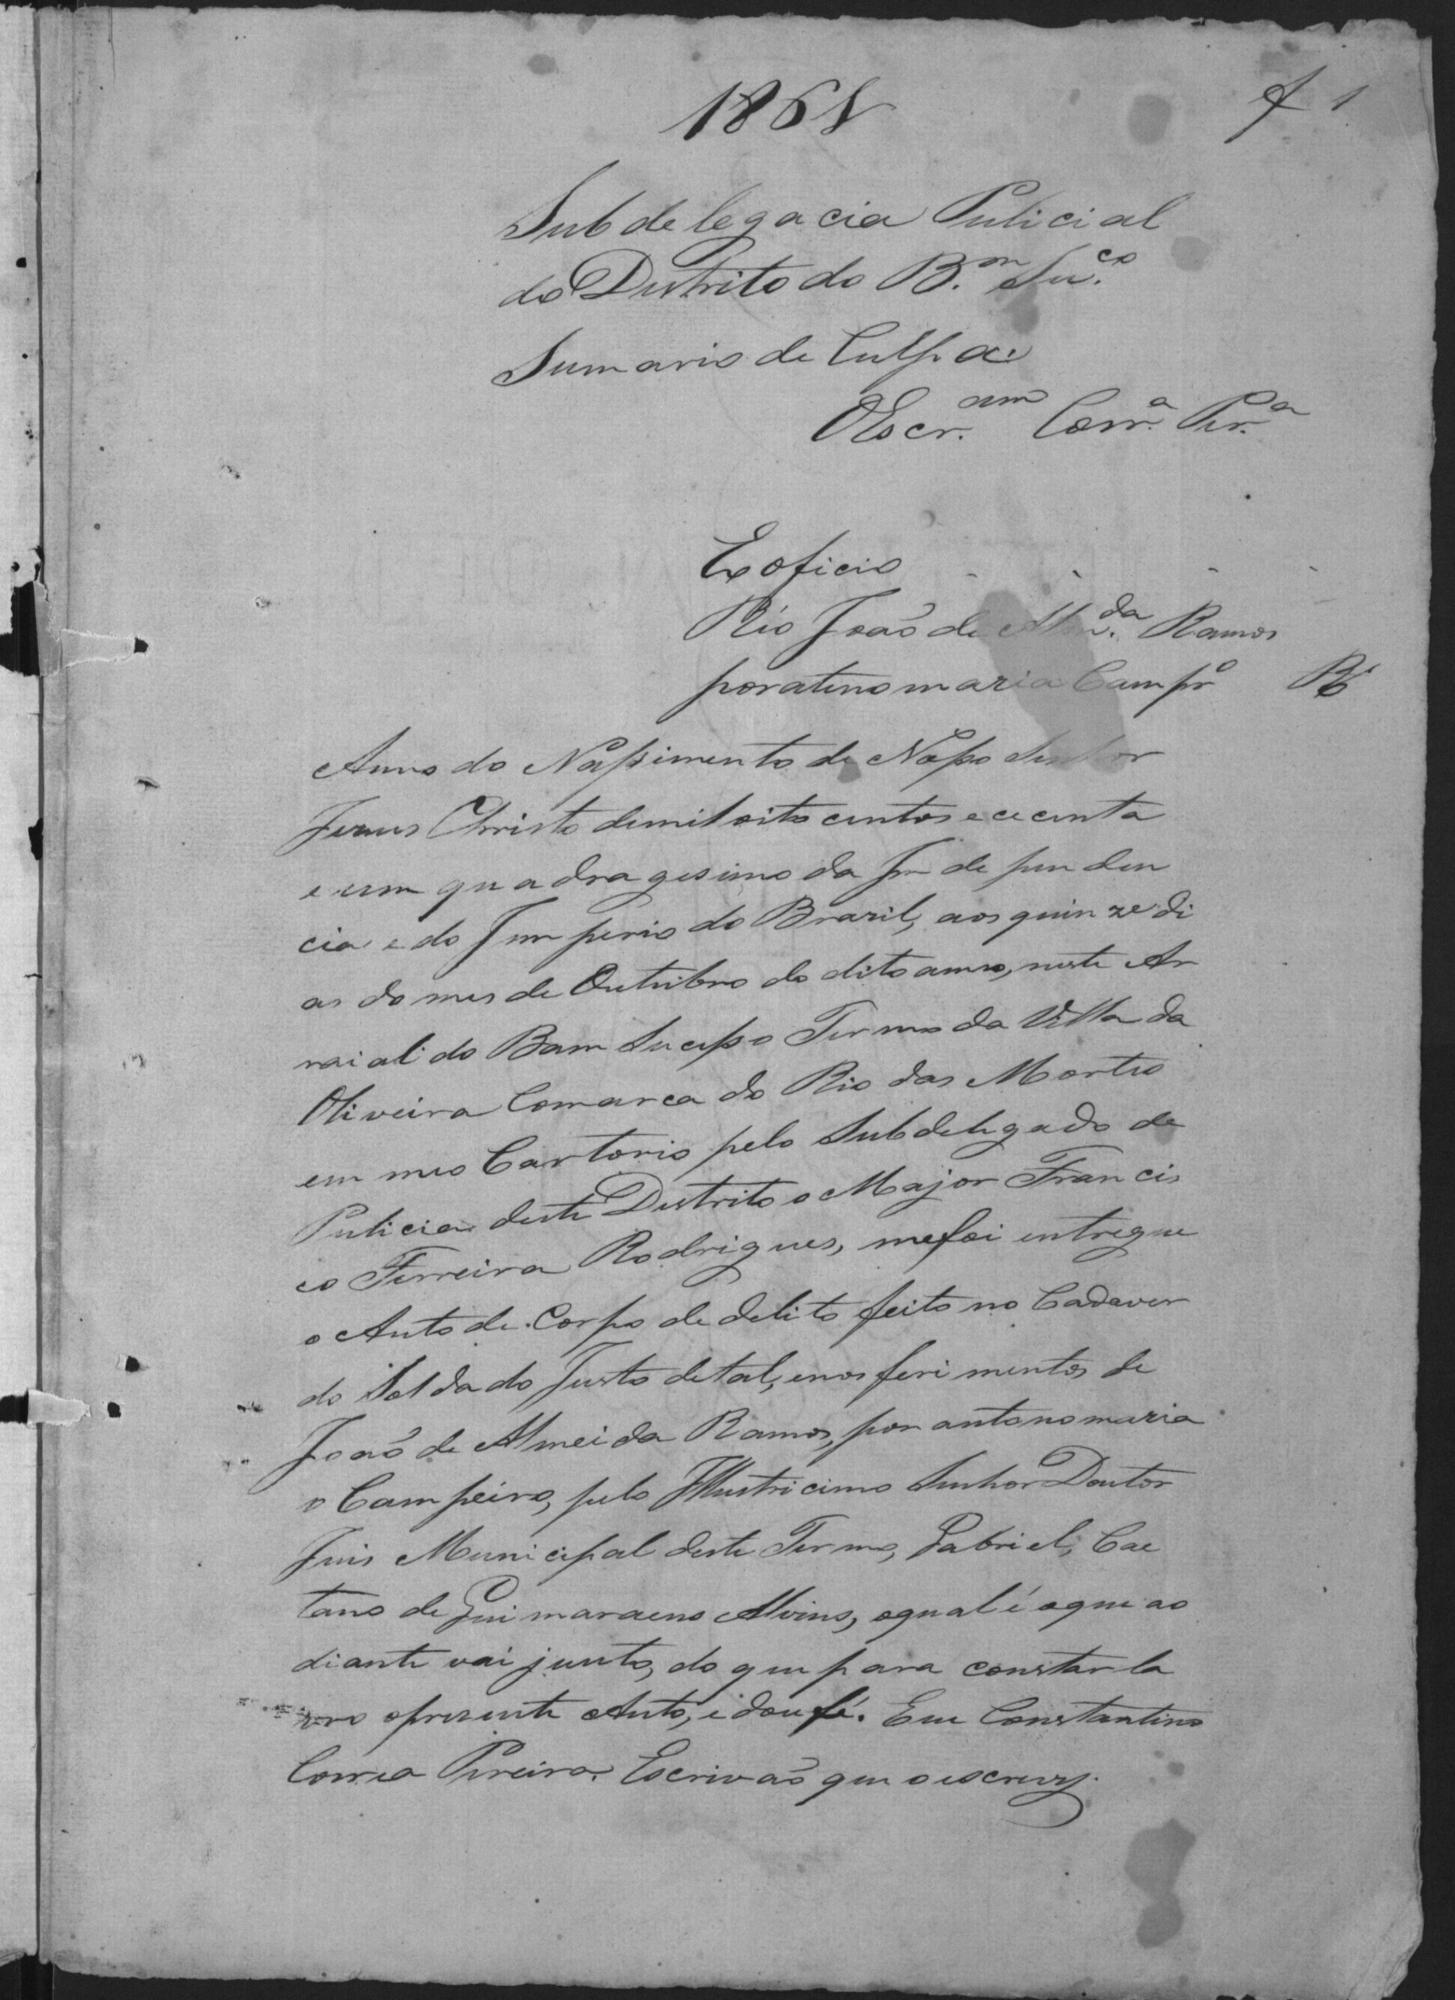 1861
f 1
Subdelegacia Pulicial
do Distrito do B.m Su.co
Sumario de Culpa
O Escr.am Corr.a Per.a
Exoficio
Rèo João de Alm.da Ramos
por atinomazia Campr.o
Anno do Nassimento de Nosso Senhor
Jezus Christo demil oito centos e cecenta
e um quadragesimo da Independen
cia e do Imperio do Brazil, aos quinze di
as do mes de Outubro do dito anno, neste Ar
raial do Bom Sucesso Termo da Villa da
Oliveira Comarca do Rio das Mortes
em meo Cartorio pelo Subdelegado de
Pulicia deste Distrito o Major Francis
co Ferreira Rodrigues, me foi entregue
o Auto de Corpo de delito feito no Cadaver
do Soldado Justo de tal, e nos ferimentos de
João de Almeida Ramos, por antonomazia
o Campeiro, pelo Illustricimo Senhor Doutor
Juis Municipal deste Termo, Gabriel, Cae
tano de Guimaraens Alvins, o qual é o que ao
diante vai junto, do que para constar la
vro o prezente Auto, e dou fé. Eu Constantino
Correa Pereira. Escrivão que o escrevy.